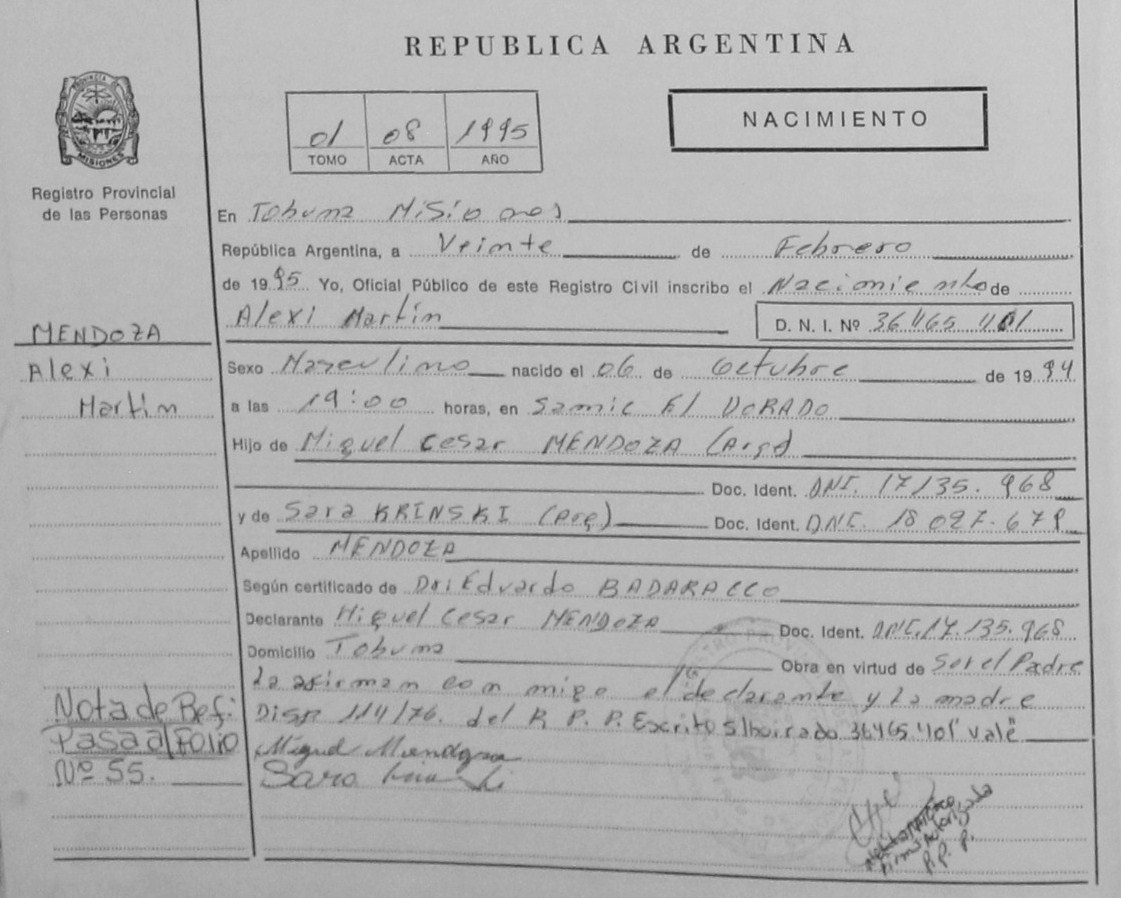 REPUBLICA ARGENTINA
PROVINCIA DE
MISIONES
Registro Provincial
de las Personas
01 08 1995
TOMO ACTA AÑO
NACIMIENTO
En Tobuna Misiones
República Argentina, a Veinte de Febrero
de 1995 Yo, Oficial Público de este Registro Civil inscribo el Nacimiento de
Alexi Martin D. N. I. Nº 36465401
MENDOZA
Alexi
Martin
Sexo Masculino nacido el 06 de Octubre de 1994
a las 19:00 horas, en Samic El DORADO
Hijo de Miguel Cesar MENDOZA (Arg)
Doc. Ident. DNI. 17135.968
y de Sara KRINSKI (Arg) Doc. Ident. DNI. 18 027.678
Apellido MENDOZA
Según certificado de Dr: Eduardo BADARACCO
Declarante Miguel Cesar MENDOZA Doc. Ident. DNI.17.135.968
Domicilio Tobuna Obra en virtud de Ser el Padre
La afirman con migo el declarante y La madre
Disp. 114/76. del R. P. P. Escrito S/borrado 36465401 Vale
Nota de Ref:
Pasa al Folio
Nº 55.
Miguel Mendoza
Sara
Firma Autorizada
R. P. P.